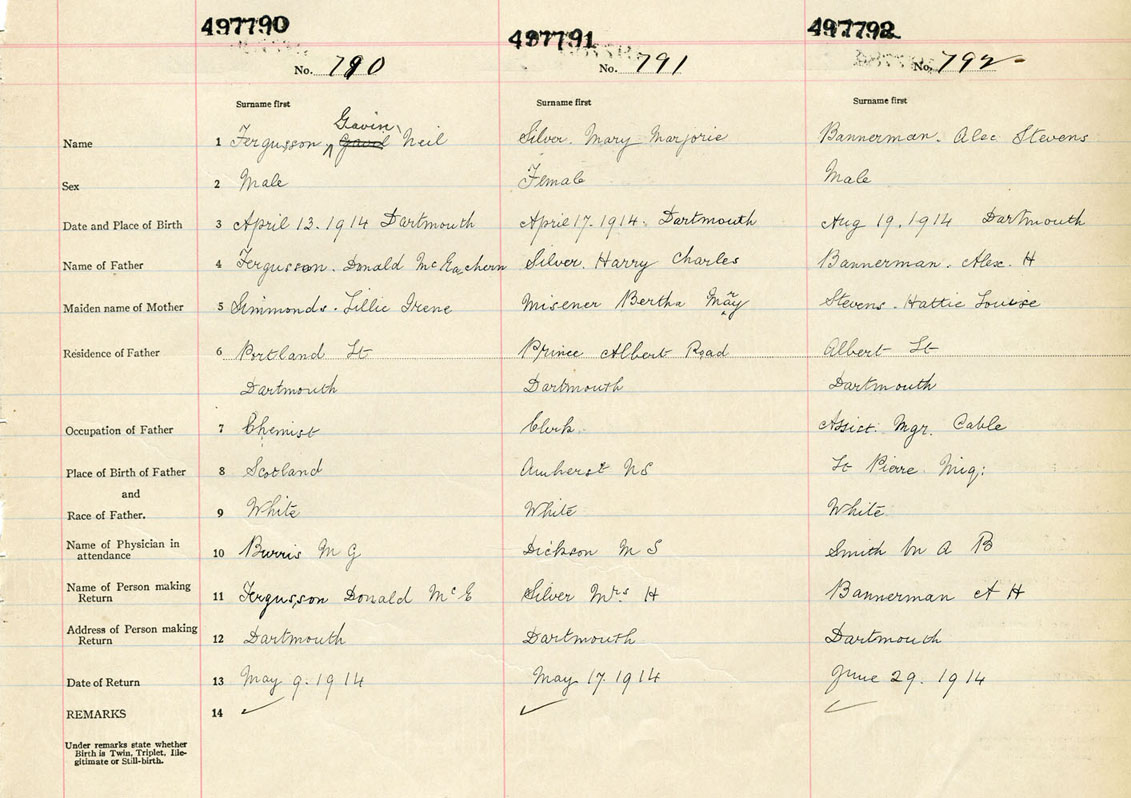 497790 497791 497792
No. 790 No. 791 No. 792
Surname first Surname first Surname first
Gavin
Name 1 Fergusson Neil Silver. Mary Marjorie Bannerman. Alec Stevens
Sex 2 Male Female Male
Date and Place of Birth 3 April 13. 1914 Dartmouth April 17. 1914. Dartmouth Aug 19. 1914 Dartmouth
Name of Father 4 Fergusson. Donald McEachern Silver. Harry Charles Bannerman. Alex. H
Maiden name of Mother 5 Simmonds. Lillie Irene Misener Bertha Mary Stevens. Hattie Louise
Residence of Father 6 Portland St Prince Albert Road Albert St
Dartmouth Dartmouth Dartmouth
Occupation of Father 7 Chemist Clerk. Assist. Mgr. Cable
Place of Birth of Father 8 Scotland Amherst NS St Pierre Miq:
and
Race of Father. 9 White White White
Name of Physician in attendance 10 Burris M G Dickson M S Smith M A B
Name of Person making Return 11 Fergusson Donald McE Silver Mrs H Bannerman A H
Address of Person making Return 12 Dartmouth Dartmouth Dartmouth
Date of Return 13 May 9. 1914 May 17. 1914 June 29. 1914
REMARKS 14
Under remarks state whether
Birth is Twin, Triplet, Ille-
gitimate or Still-birth.